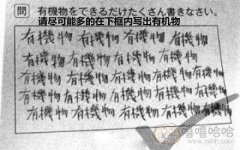 問 有機物をできるだけたくさん書きなさい。
请尽可能多的在下框内写出有机物
有機物 有機物 有機物 有機物 有機物
有機物 有機物 有機物 有機物 有機物
有機物 有機物 有機物 有機物 有機物
有機物 有機物 有機物 有機物 有機物 有機物
有機物 有機物 有機物 有機物 有機物 有機物
嘻嘻哈哈